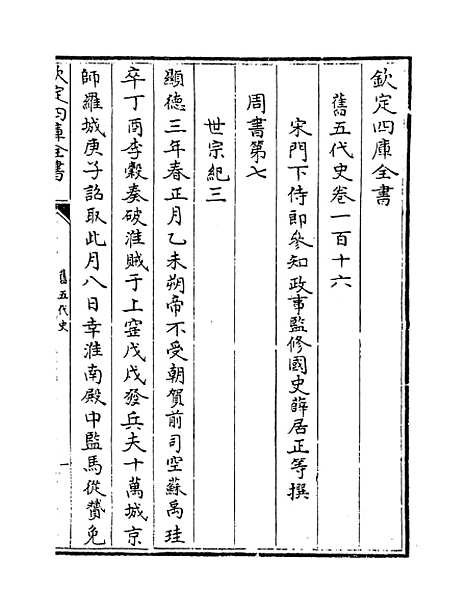 欽定四庫全書
舊五代史卷一百十六
宋門下侍郎參知政事監修國史薛居正等撰
周書第七
世宗紀三
顯德三年春正月乙未朔帝不受朝賀前司空蘇禹珪
卒丁酉李穀奏破淮賊于上窰戊戌發兵夫十萬城京
師羅城庚子詔取此月八日幸淮南殿中監馬從贇免
欽定四庫全書
舊五代史
一